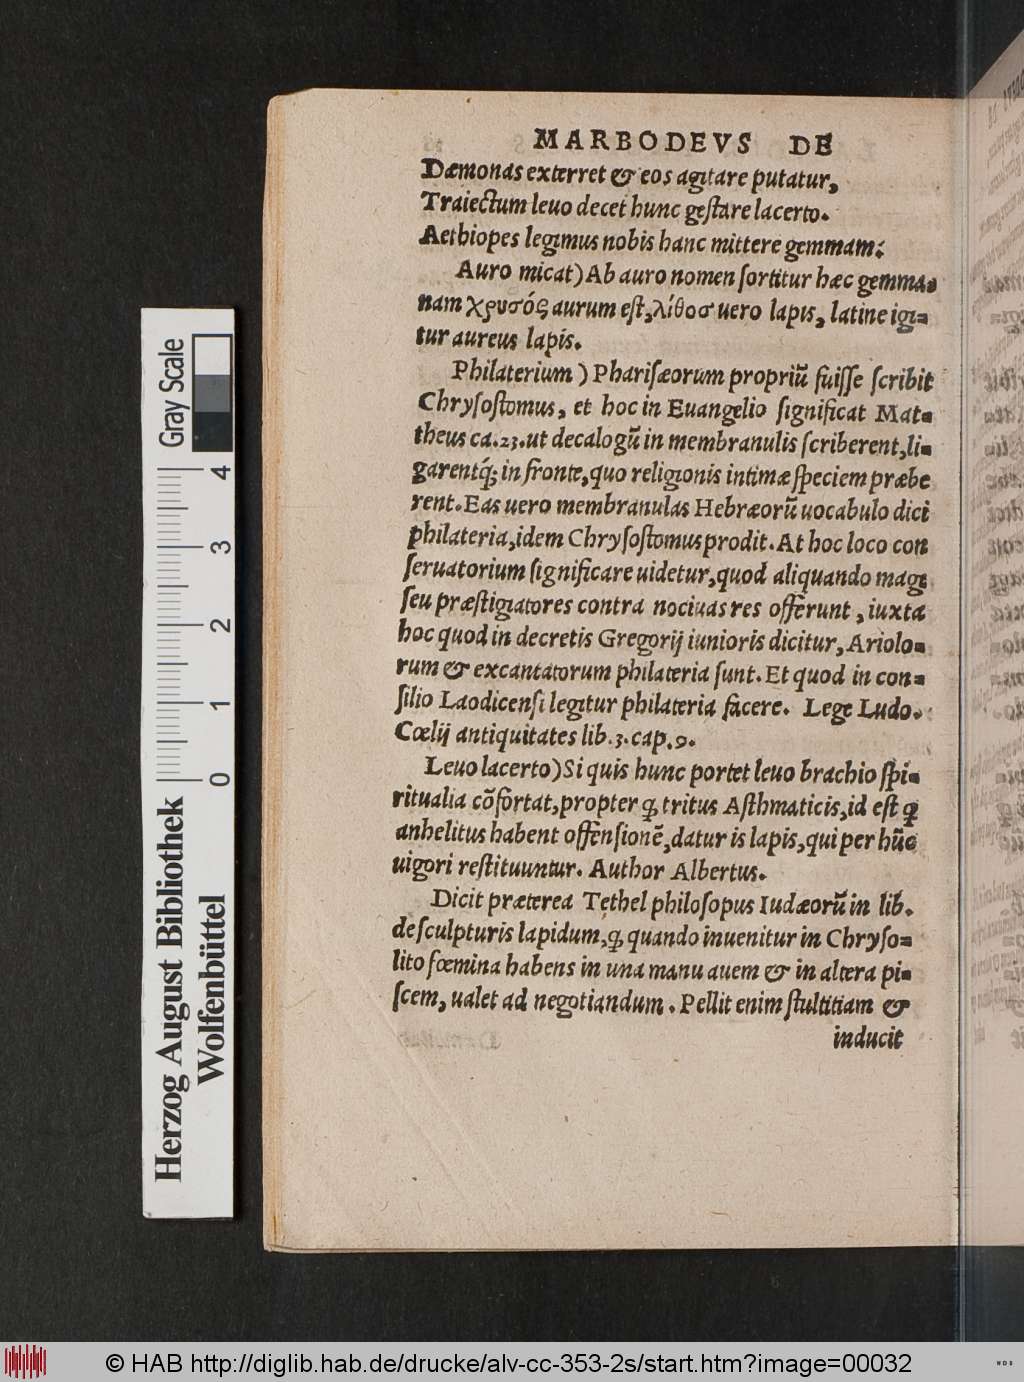 MARBODEVS DE
Dæmonas exterret & eos agitare putatur,
Traiectum leuo decet hunc gestare lacerto.
Aethiopes legimus nobis hanc mittere gemmam:
Auro micat) Ab auro nomen sortitur hæc gemma=
nam χρυσός aurum est, λίθοσ uero lapis, latine igi=
tur aureus lapis.
Philaterium) Pharisæorum propriũ fuisse scribit
Chrysostomus, et hoc in Euangelio significat Mat=
theus ca.23. ut decalogũ in membranulis scriberent, li=
garentq́; in fronte, quo religionis intimæ speciem præbe
rent. Eas uero membranulas Hebræorũ uocabulo dici
philateria, idem Chrysostomus prodit. At hoc loco con
seruatorium significare uidetur, quod aliquando magi
seu præstigiatores contra nociuas res offerunt, iuxta
hoc quod in decretis Gregorij iunioris dicitur, Ariolo=
rum & excantatorum philateria sunt. Et quod in con=
silio Laodicensi legitur philateria facere. Lege Ludo.
Cœlij antiquitates lib.3.cap.9.
Leuo lacerto) Si quis hunc portet leuo brachio spi=
ritualia cõfortat, propter ꝙ tritus Asthmaticis, id est ꝙ
anhelitus habent offensionẽ, datur is lapis, qui per hũc
uigori restituuntur. Author Albertus.
Dicit præterea Tethel philosopus Iudæorũ in lib.
de sculpturis lapidum, ꝙ quando inuenitur in Chryso=
lito fœmina habens in una manu auem & in altera pi=
scem, ualet ad negotiandum. Pellit enim stultitiam &
inducit
Gray Scale
4
3
2
1
0
Herzog August Bibliothek
Wolfenbüttel
© HAB http://diglib.hab.de/drucke/alv-cc-353-2s/start.htm?image=00032